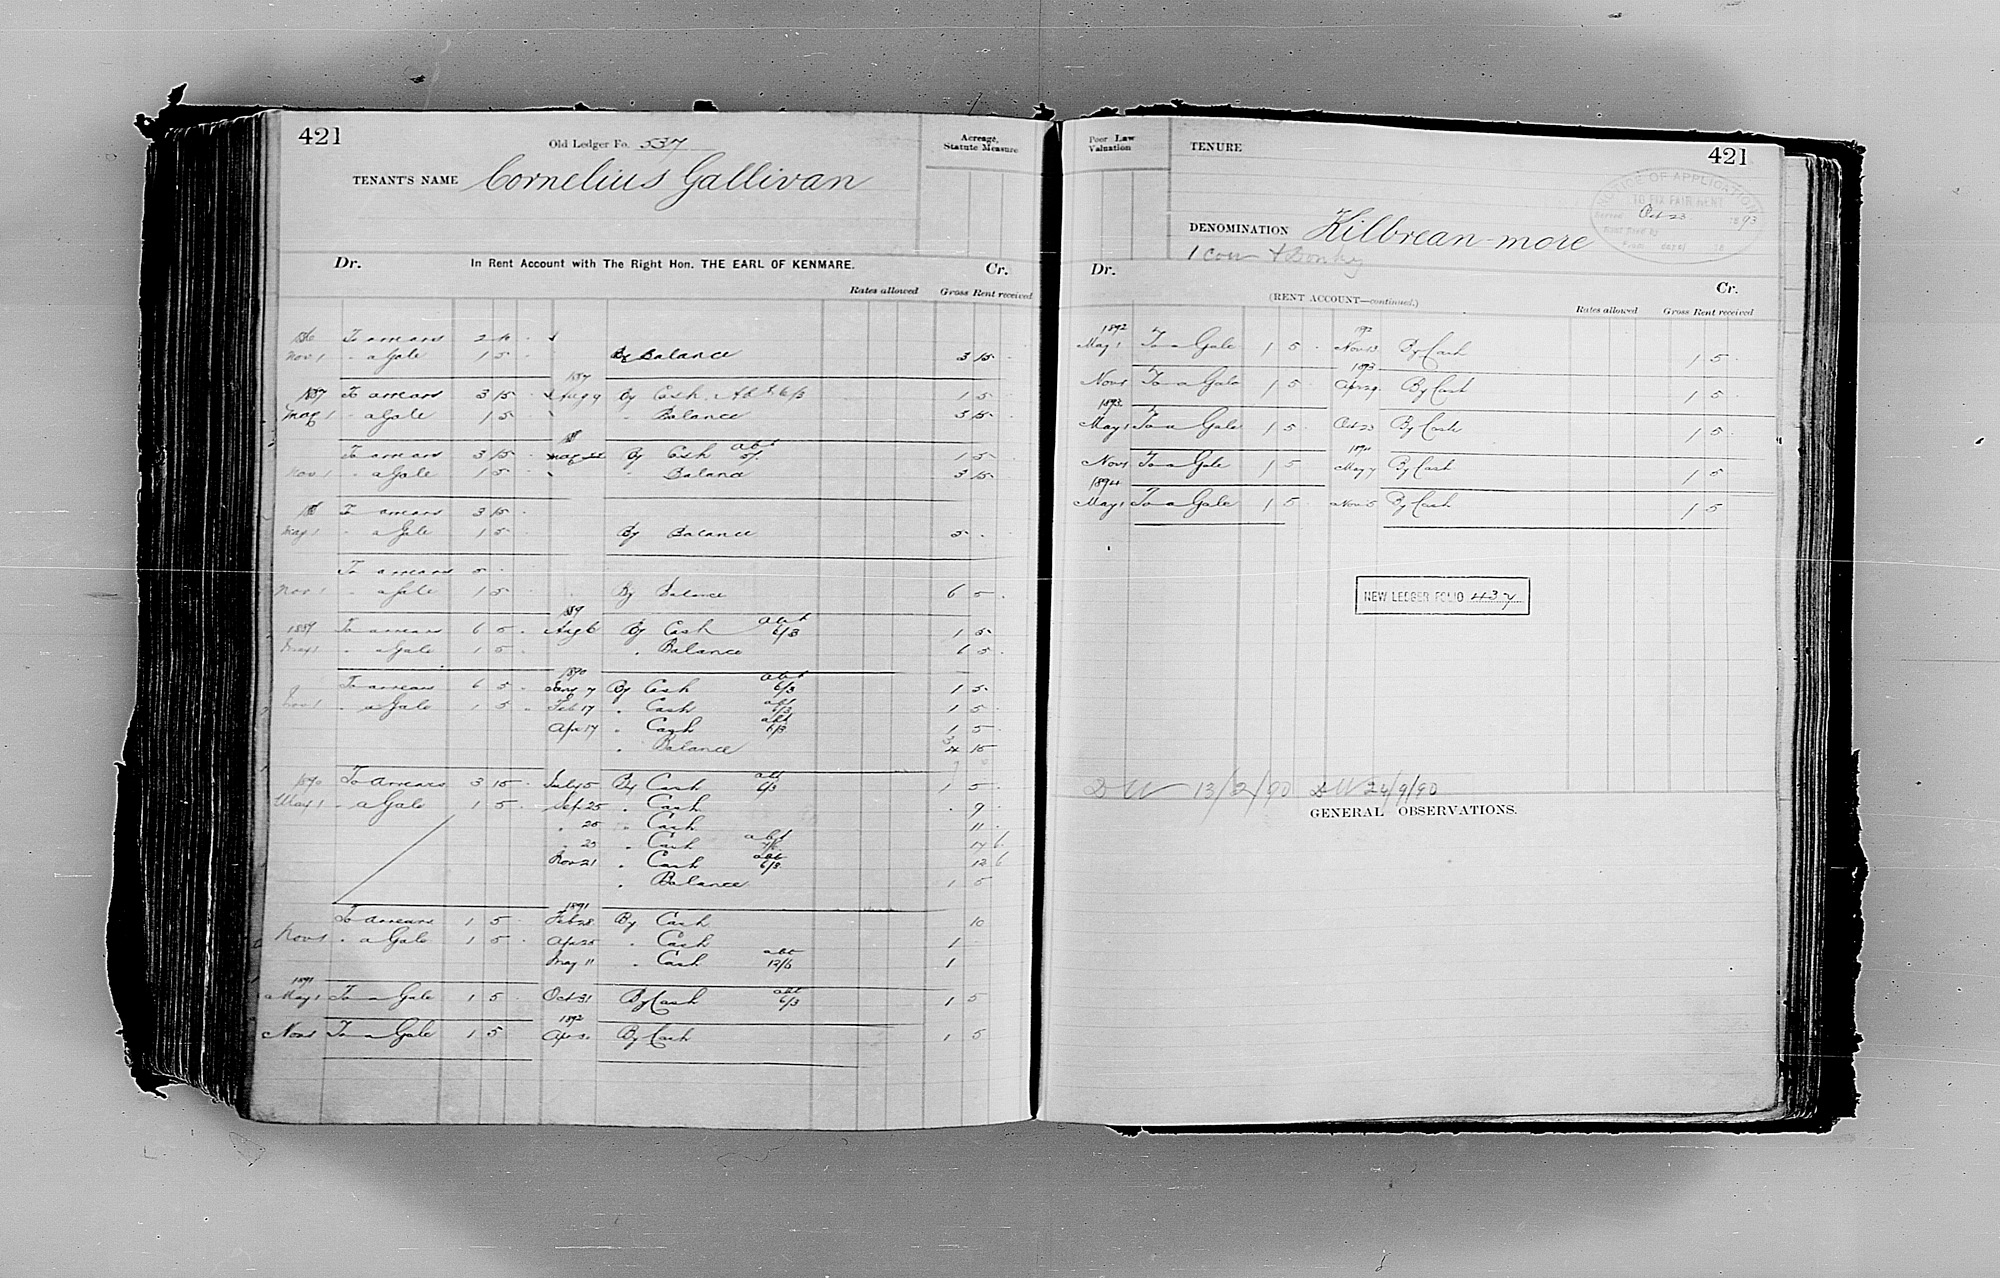 421
Old Ledger Fo. 537
TENANT'S NAME Cornelius Gallivan
Acreage, Statute Measure
Dr. In Rent Account with The Right Hon. THE EARL OF KENMARE. Cr.
Rates allowed Gross Rent received
To arrears 2 10
Nov 1 " a Gale 1 5 By Balance 3 15
1887
1887 To arrears 3 15 Aug 9 By Cash Abt 6/3 1 5
May 1 " a Gale 1 5 " Balance 3 15
abt
To arrears 3 15 By Cash 1 5
Nov 1 " a Gale 1 5 " Balance 3 15
To arrears 3 15
May 1 " a Gale 1 5 By Balance 5
To arrears 5
Nov 1 " a Gale 1 5 By Balance 6 5
1889 To arrears 6 5 Aug 6 By Cash abt 6/3 1 5
May 1 " a Gale 1 5 " Balance 6 5
1890
To arrears 6 5 Jany 7 By Cash abt 6/3 1 5
Nov 1 " a Gale 1 5 Feb 17 " Cash abt 6/3 1 5
Apr 17 " Cash abt 6/3 1 5
" Balance 3 15
1890 To Arrears 3 15 July 5 By Cash abt 6/3 1 5
May 1 " a Gale 1 5 Sep 25 " Cash 9
" 25 " Cash 11
" 25 " Cash abt 17 6
Nov 21 " Cash abt 6/3 12 6
" Balance 1 5
1891
To arrears 1 5 Feb 28 By Cash 10
Nov 1 " a Gale 1 5 Apr 25 " Cash 1
May 11 " Cash abt 12/6 1
1891
May 1 To a Gale 1 5 Oct 31 By Cash abt 6/3 1 5
1892
Nov 1 To a Gale 1 5 Apr 30 By Cash 1 5
Poor Law Valuation
TENURE
421
NOTICE OF APPLICATION
TO FIX FAIR RENT
Served Oct 23 1893
DENOMINATION Kilbrean-more
1 cow + Donky
Dr. Cr.
(RENT ACCOUNT—continued.)
Rates allowed Gross Rent received
1892 1892
May 1 To a Gale 1 5 Nov 13 By Cash 1 5
1893
Nov 1 To a Gale 1 5 Apr 29 By Cash 1 5
1893
May 1 To a Gale 1 5 Oct 23 By Cash 1 5
1894
Nov 1 To a Gale 1 5 May 7 By Cash 1 5
1894
May 1 To a Gale 1 5 Nov 5 By Cash 1 5
NEW LEDGER FOLIO 437
DW 13/2/90 DW 24/9/90
GENERAL OBSERVATIONS.